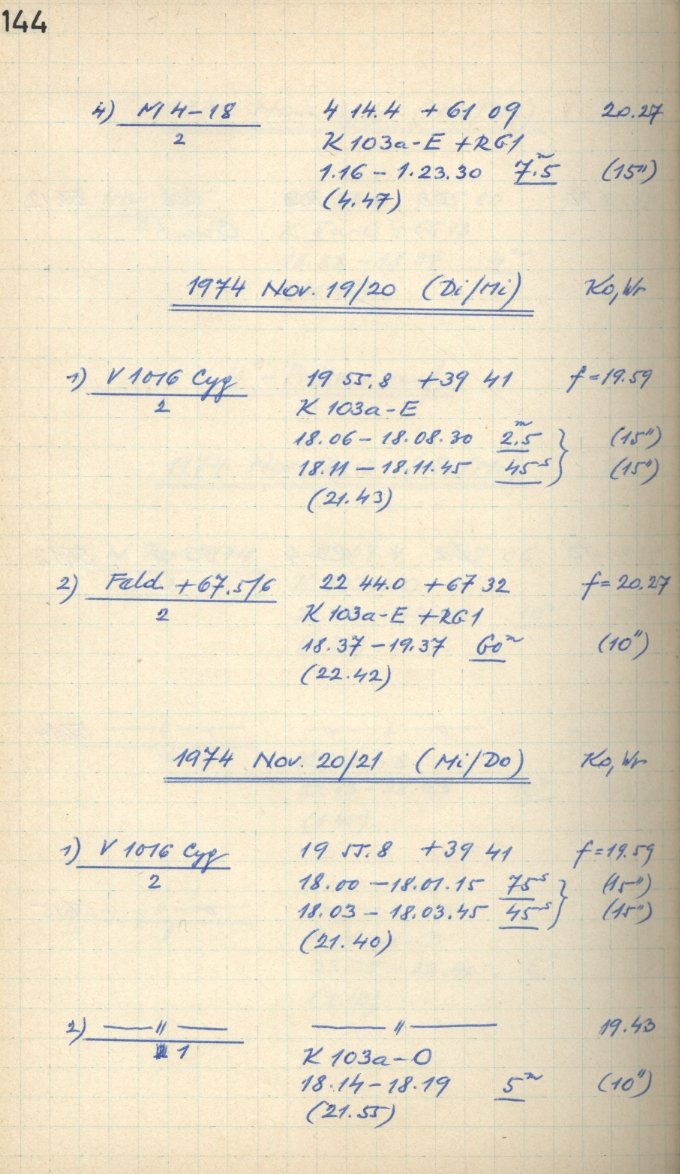 144
4) M 4-18 4 14.4 +61 09 20.27
2 K 103a-E +RG1
1.16 – 1.23.30 7.5ᵐ (15")
(4.47)
1974 Nov. 19/20 (Di/Mi) Ko, Wr
1) V 1016 Cyg 19 55.8 +39 41 f=19.59
2 K 103a-E
18.06 – 18.08.30 2.5ᵐ } (15")
18.11 – 18.11.45 45ˢ } (15")
(21.43)
2) Feld +67.5/6 22 44.0 +67 32 f=20.27
2 K 103a-E +RG1
18.37 – 19.37 60ᵐ (10")
(22.42)
1974 Nov. 20/21 (Mi/Do) Ko, Wr
1) V 1016 Cyg 19 55.8 +39 41 f=19.59
2 18.00 – 18.01.15 75ˢ } (15")
18.03 – 18.03.45 45ˢ } (15")
(21.40)
2) —〃— —〃— 19.43
1 K 103a-O
18.14 – 18.19 5ᵐ (10")
(21.55)